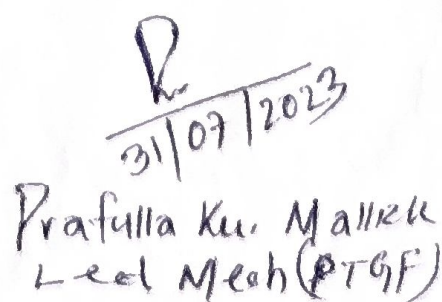 31/07/2023
Prafulla Ku. Mallick
Lead Mech (PTGF)